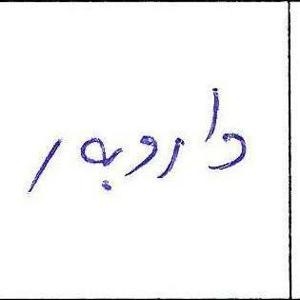 داروبه ر